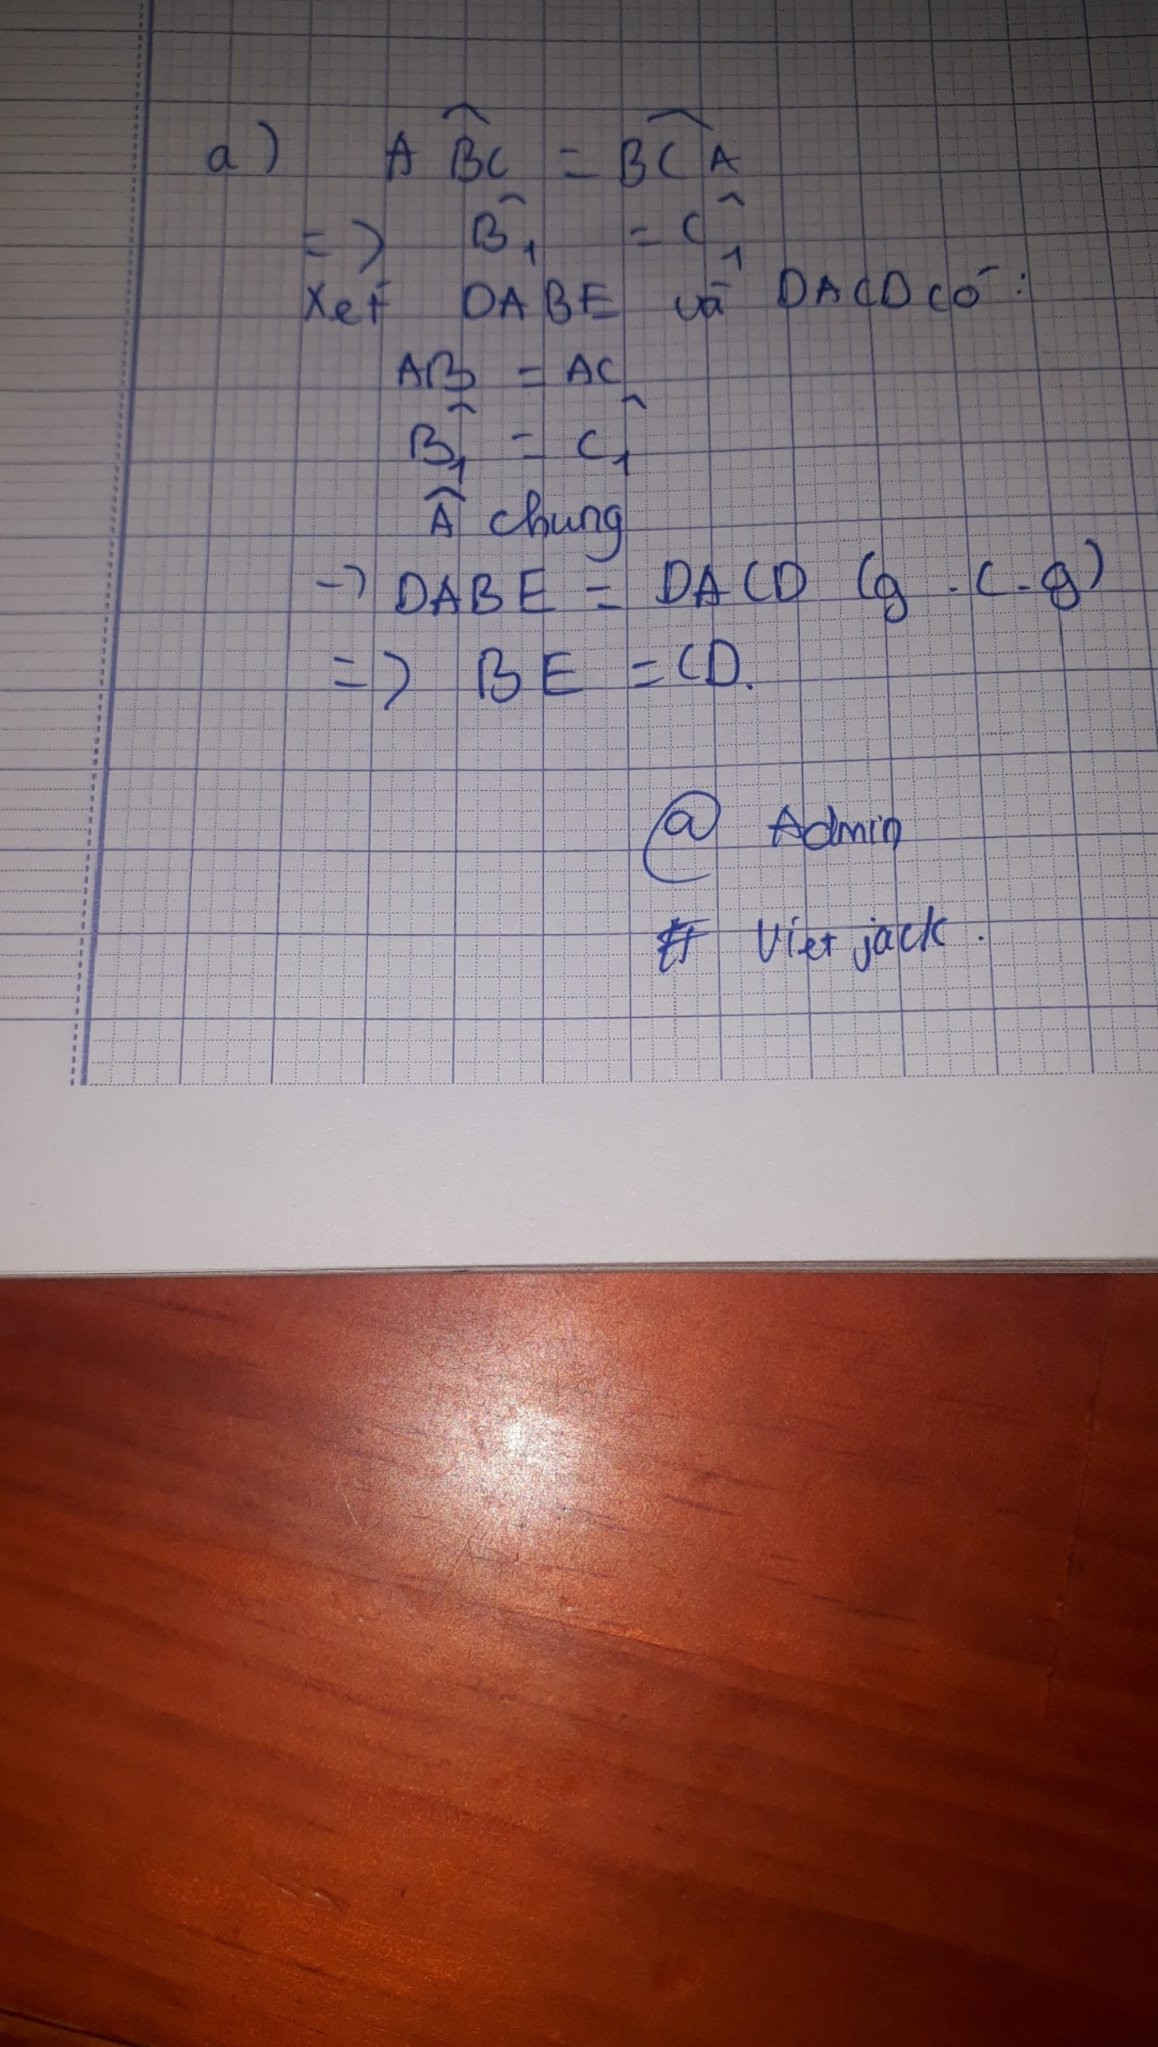 a) ABC^ = BCA^
=> B1^ = C1^
Xét DABE và DACD có:
AB = AC
B1^ = C1^
Â chung
-> DABE = DACD (g.c-g)
=> BE = CD.
@ Admin
# Vietjack.